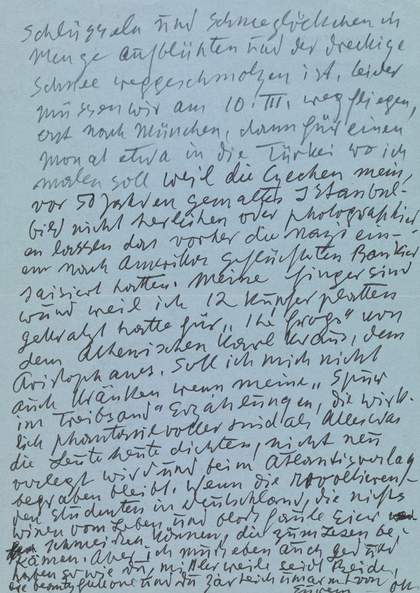 Schlüsseln und Schneeglöckchen in
Menge aufblühten und der dreckige
Schnee weggeschmolzen ist, leider
müssen wir am 10. III. wegfliegen,
erst nach München, dann für einen
monat etwa in die Türkei wo ich
malen soll weil die Czechen mein
vor 50 Jahren gemaltes Istanbul-
bild nicht herleihen oder photographier
en lassen das vorher die nazi ein-
em nach Amerika geflüchteten Bankier
saisiert hatten. Meine Finger sind
wund weil ich 12 Kupferplatten
gekratzt hatte für "the frogs" von
dem Athenischen Karl Kraus, dem
Aristophanes. Soll ich mich nicht
auch kränken wenn meine "Spur
im Treibsand" Erzählungen, die wirk-
lich phantasievoller sind als Alles was
die Leute heute dichten, nicht neu
verlegt wird und beim Atlantisverlag
begraben bleibt. Wenn die revoltieren-
den Studenten in Deutschland, die nichts
wissen vom Leben und blos faule Eier
schmeissen können, die zum Lesen be-
kämen. Aber ich muss eben auch geduld
haben so wie du, mittlerweile seid Beide,
die und du zärtlich umarmt von
OK